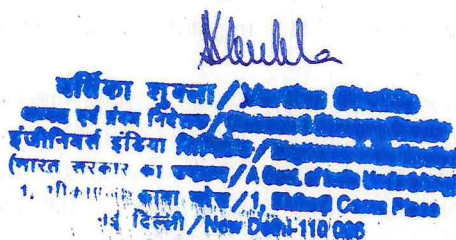 Shukla
वर्तिका शुक्ला / Vartika Shukla
अध्यक्ष एवं प्रबंध निदेशक / Chairman & Managing Director
इंजीनियर्स इंडिया लिमिटेड / Engineers India Limited
(भारत सरकार का उपक्रम / A Govt. of India Undertaking)
1, भीकाजी कामा प्लेस / 1, Bhikaiji Cama Place
नई दिल्ली / New Delhi-110 066